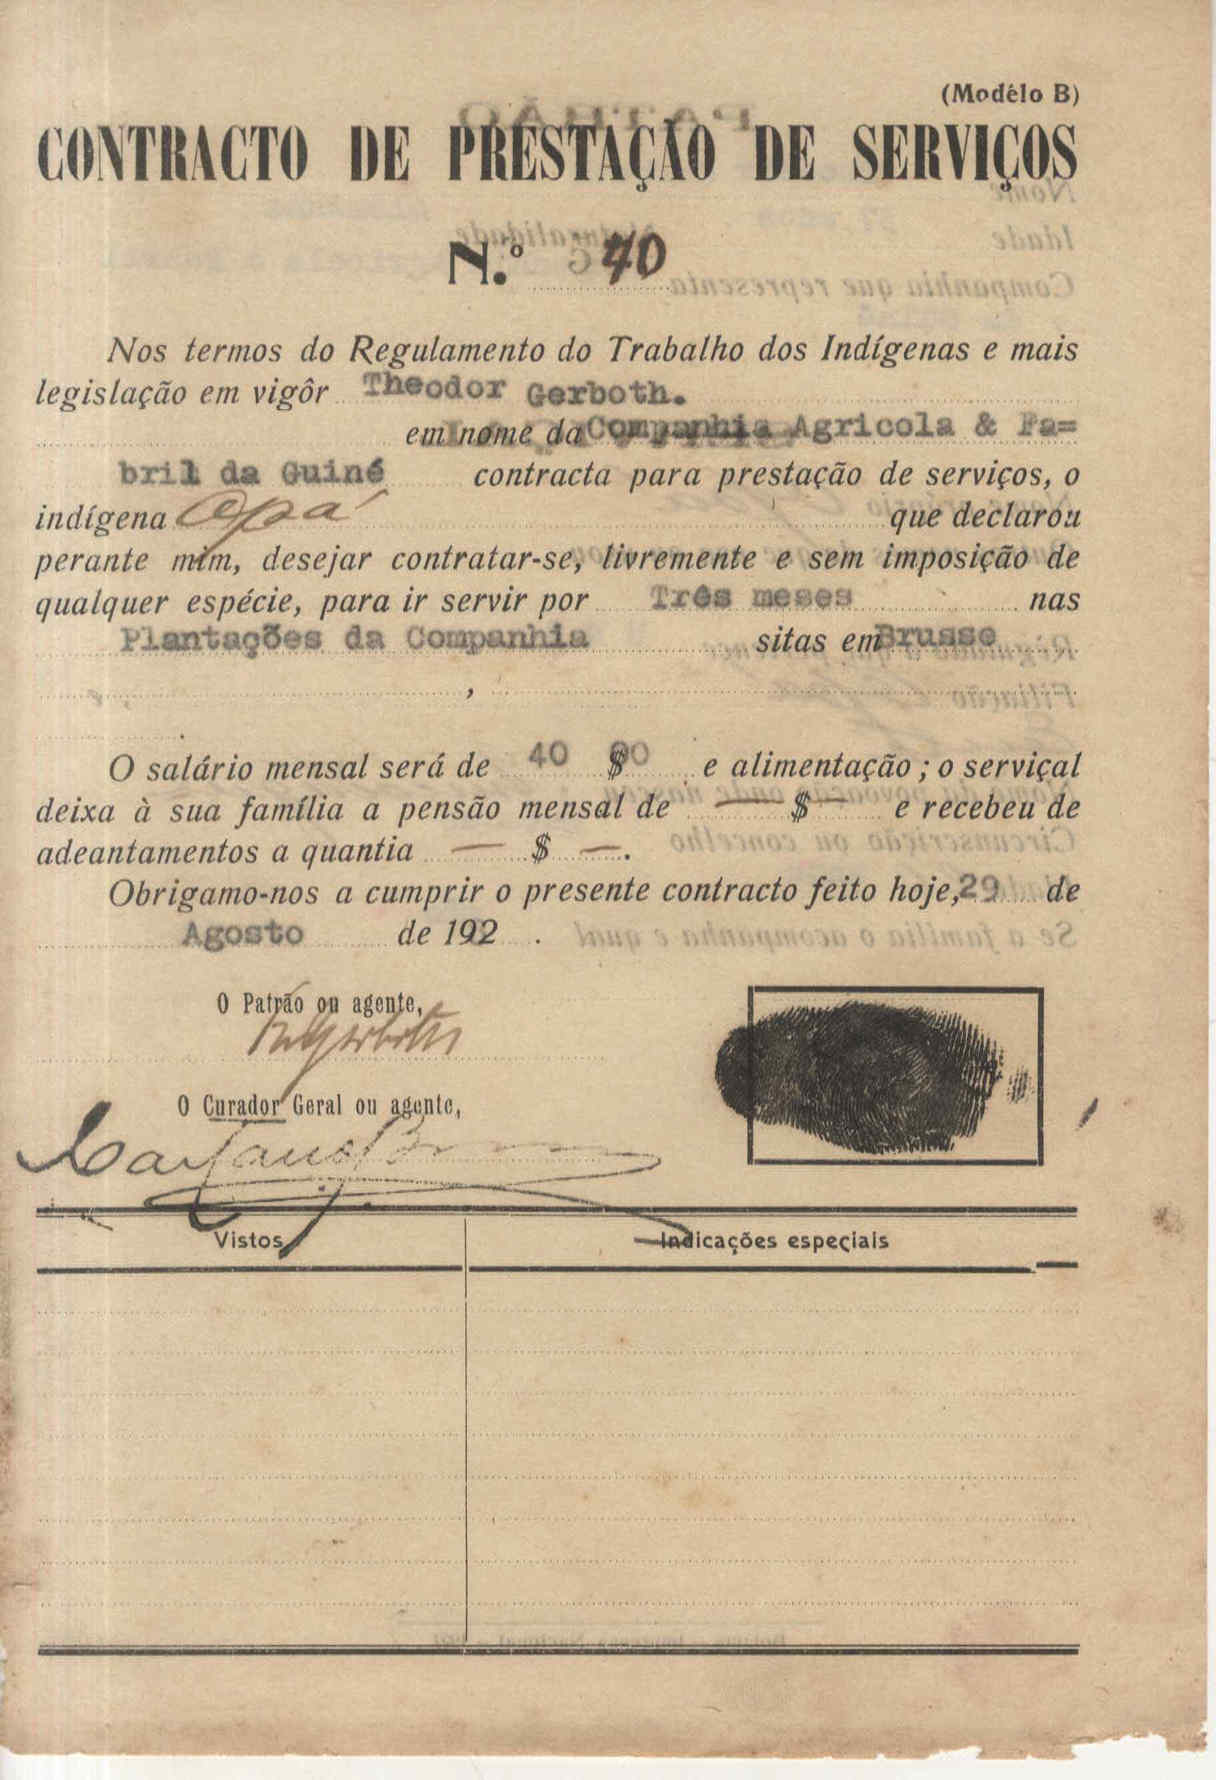 (Modêlo B)
CONTRACTO DE PRESTAÇÃO DE SERVIÇOS
N.º 40
Nos termos do Regulamento do Trabalho dos Indígenas e mais
legislação em vigôr Theodor Gerboth.
em nome da Companhia Agricola & Fa=
bril da Guiné contracta para prestação de serviços, o
indígena Opá que declarou
perante mim, desejar contratar-se, livremente e sem imposição de
qualquer espécie, para ir servir por Três meses nas
Plantações da Companhia sitas em Brusse
,
O salário mensal será de 40 $ 00 e alimentação ; o serviçal
deixa à sua família a pensão mensal de — $ — e recebeu de
adeantamentos a quantia — $ —.
Obrigamo-nos a cumprir o presente contracto feito hoje, 29 de
Agosto de 192 .
O Patrão ou agente,
Gerboth
O Curador Geral ou agente,
Vistos
Indicações especiais